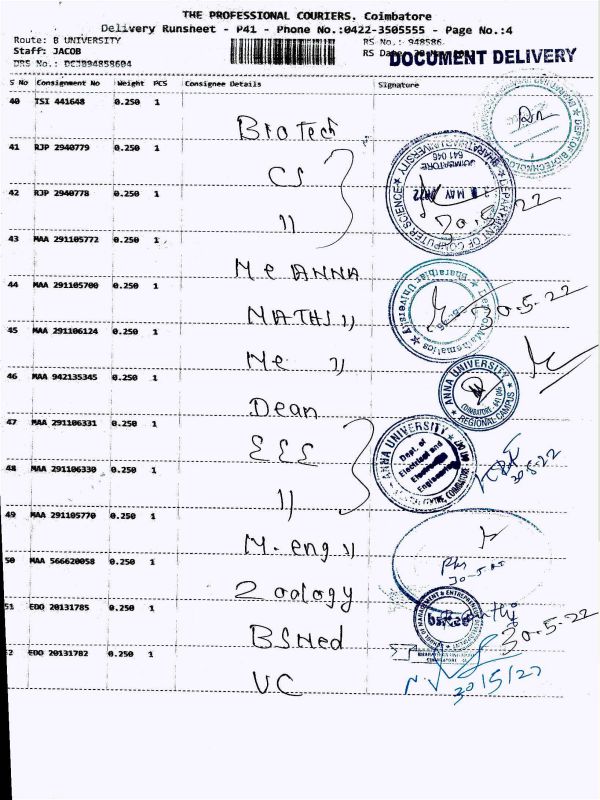 THE PROFESSIONAL COURIERS. Coimbatore
Delivery Runsheet - P41 - Phone No.:0422-3505555 - Page No.:4
Route: B UNIVERSITY
RS No.: 948586
Staff: JACOB
RS Date:
DOCUMENT DELIVERY
DRS No.: DCJB94858604
S No Consignment No Weight PCS Consignee Details Signature
40 TSI 441648 0.250 1
BioTech
41 RJP 2940779 0.250 1
CS
42 RJP 2940778 0.250 1
DEPARTMENT OF COMPUTER SCIENCE
COIMBATORE
641 046
30.5-22
43 MAA 291105772 0.250 1
Me ANNA
44 MAA 291105700 0.250 1
MATHS 〃
30-5-22
45 MAA 291106124 0.250 1
Me 〃
46 MAA 942135345 0.250 1
ANNA UNIVERSITY
REGIONAL CAMPUS
Dean
47 MAA 291106331 0.250 1
EEE
ANNA UNIVERSITY
Dept. of
Electrical and
Engineering
48 MAA 291106330 0.250 1
〃
49 MAA 291105770 0.250 1
M.eng 〃
50 MAA 566620058 0.250 1
Zoology
51 EDO 20131785 0.250 1
BSMed
30-5-22
EDO 20131782 0.250 1
VC
30/5/22